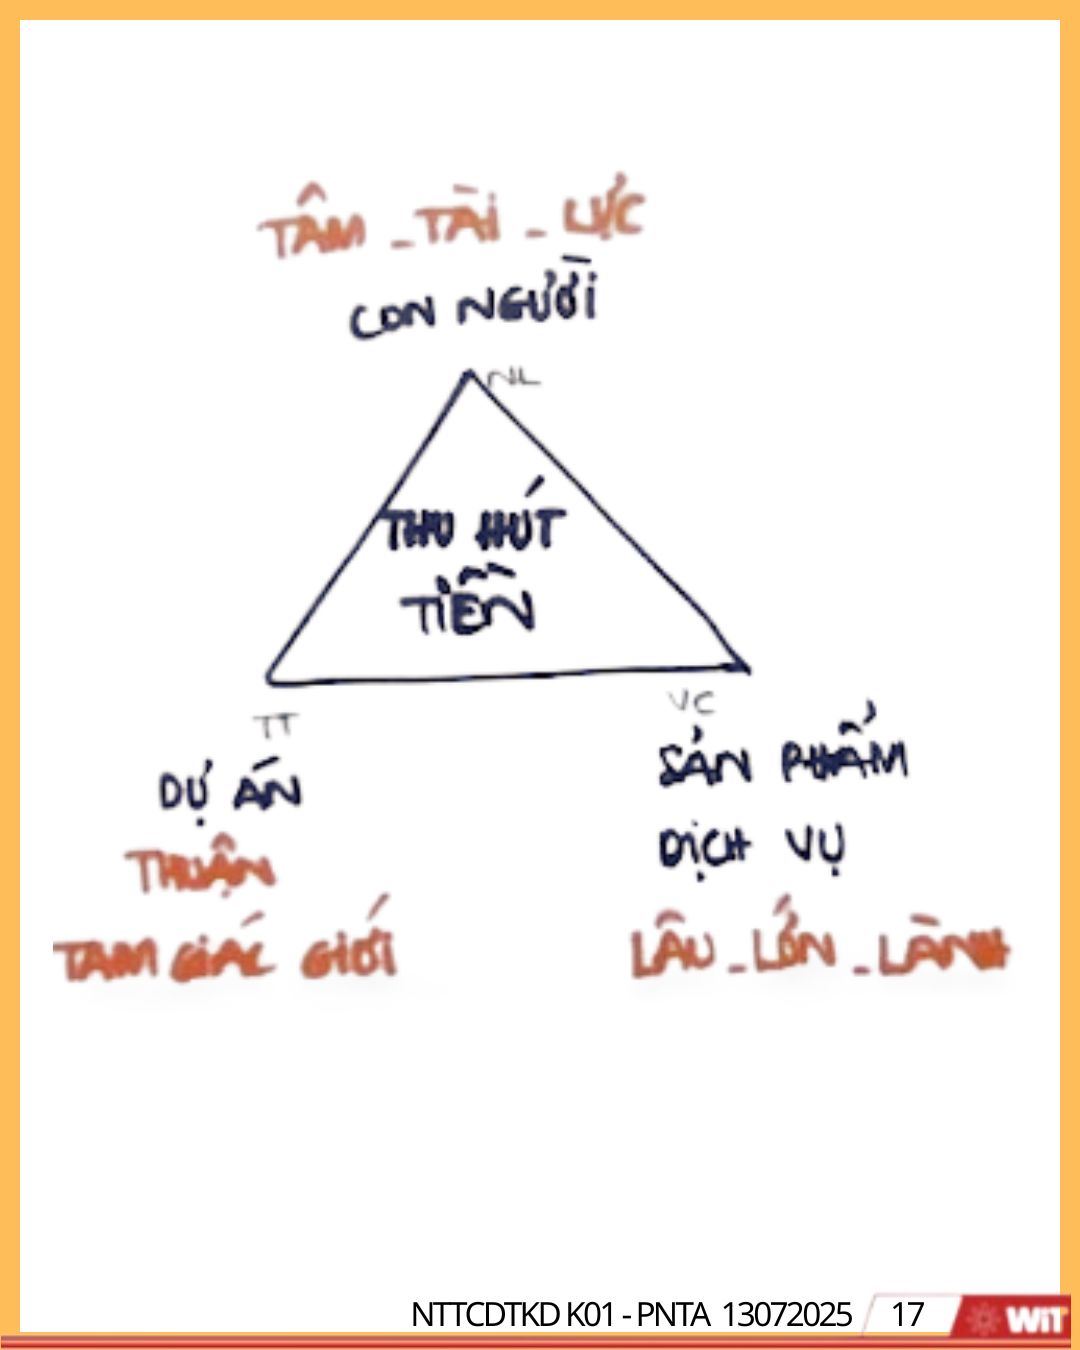 TÂM - TÀI - LỰC
CON NGƯỜI
NL
THU HÚT
TIỀN
TT
VC
DỰ ÁN
THUẬN
TAM GIÁC GIỚI
SẢN PHẨM
DỊCH VỤ
LÂU - LỚN - LÀNH
NTTCDTKD K01 - PNTA 13072025
17
WiT